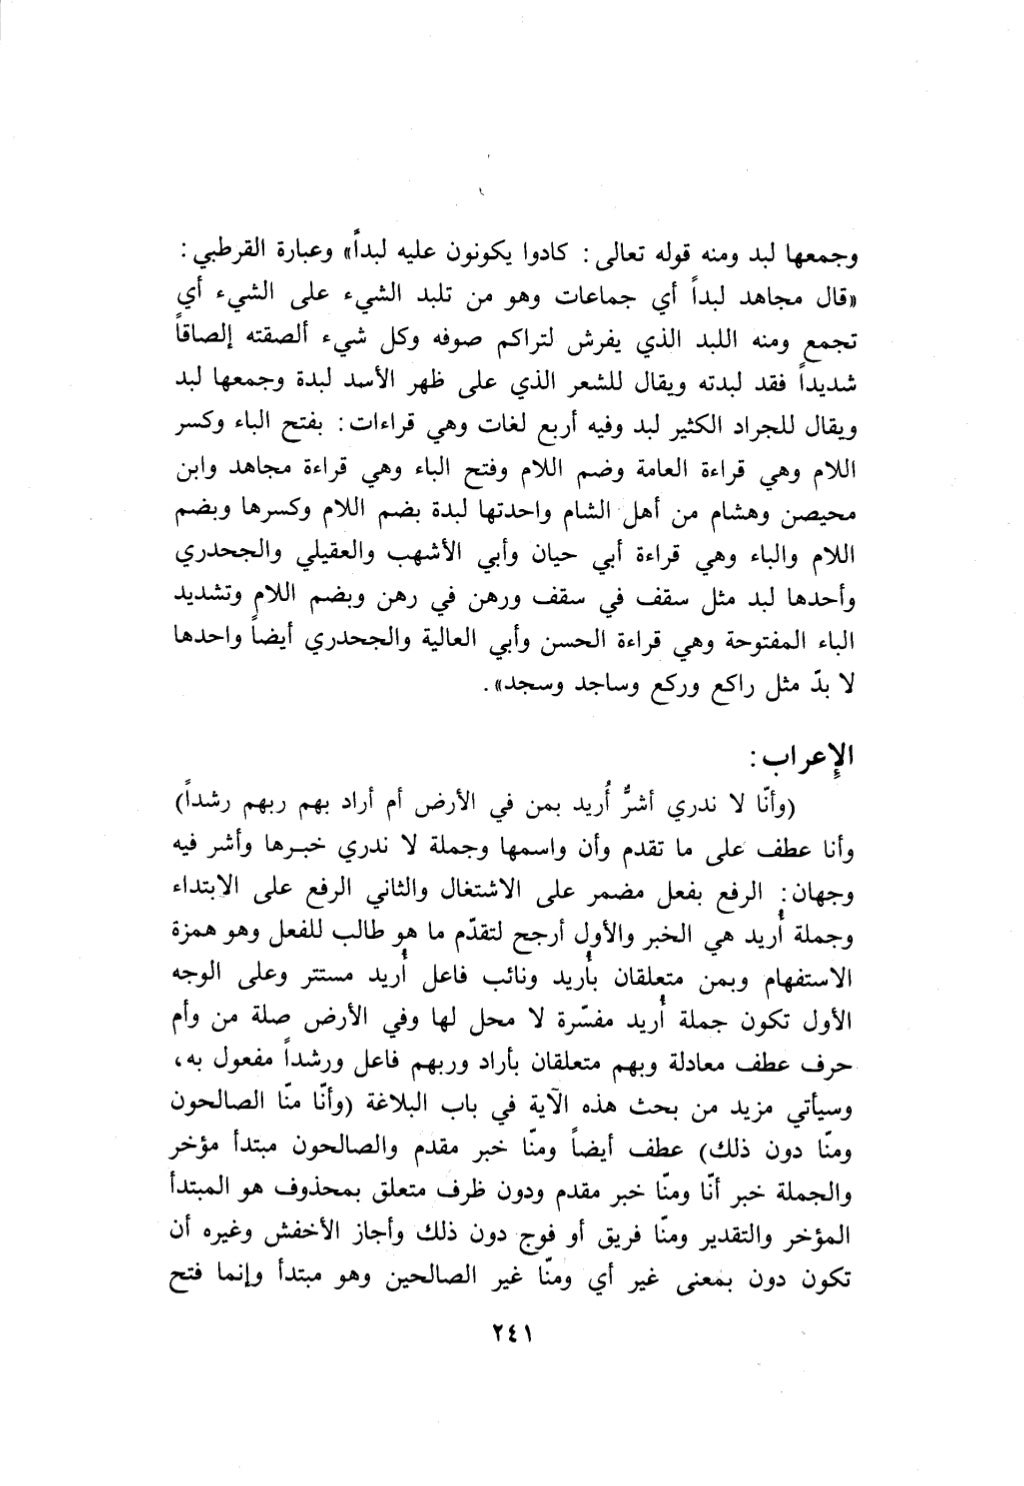 وجمعها لبد ومنه قوله تعالى : كادوا يكونون عليه لبداً» وعبارة القرطبي :
«قال مجاهد لبداً أي جماعات وهو من تلبد الشيء على الشيء أي
تجمع ومنه اللبد الذي يفرش لتراكم صوفه وكل شيء ألصقته إلصاقاً
شديداً فقد لبدته ويقال للشعر الذي على ظهر الأسد لبدة وجمعها لبد
ويقال للجراد الكثير لبد وفيه أربع لغات وهي قراءات : بفتح الباء وكسر
اللام وهي قراءة العامة وضم اللام وفتح الباء وهي قراءة مجاهد وابن
محيصن وهشام من أهل الشام واحدتها لبدة بضم اللام وكسرها وبضم
اللام والباء وهي قراءة أبي حيان وأبي الأشهب والعقيلي والجحدري
وأحدها لبد مثل سقف في سقف ورهن في رهن وبضم اللام وتشديد
الباء المفتوحة وهي قراءة الحسن وأبي العالية والجحدري أيضاً واحدها
لا بدّ مثل راكع وركع وساجد وسجد» .
الإعراب :
(وأنّا لا ندري أشرٌّ أُريد بمن في الأرض أم أراد بهم ربهم رشداً)
وأنا عطف على ما تقدم وأن واسمها وجملة لا ندري خبرها وأشر فيه
وجهان : الرفع بفعل مضمر على الاشتغال والثاني الرفع على الابتداء
وجملة أُريد هي الخبر والأول أرجح لتقدّم ما هو طالب للفعل وهو همزة
الاستفهام وبمن متعلقان بأُريد ونائب فاعل أُريد مستتر وعلى الوجه
الأول تكون جملة أُريد مفسّرة لا محل لها وفي الأرض صلة من وأم
حرف عطف معادلة وبهم متعلقان بأراد وربهم فاعل ورشداً مفعول به ،
وسيأتي مزيد من بحث هذه الآية في باب البلاغة (وأنّا منّا الصالحون
ومنّا دون ذلك) عطف أيضاً ومنّا خبر مقدم والصالحون مبتدأ مؤخر
والجملة خبر أنّا ومنّا خبر مقدم ودون ظرف متعلق بمحذوف هو المبتدأ
المؤخر والتقدير ومنّا فريق أو فوج دون ذلك وأجاز الأخفش وغيره أن
تكون دون بمعنى غير أي ومنّا غير الصالحين وهو مبتدأ وإنما فتح
٢٤١